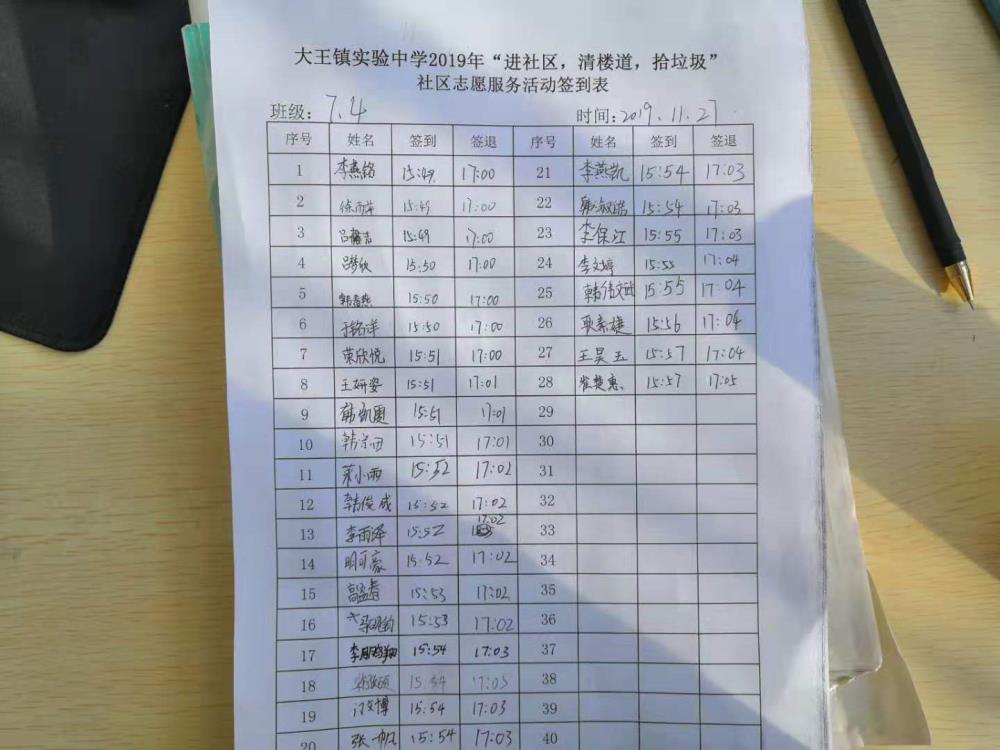 大王镇实验中学2019年“进社区，清楼道，拾垃圾”
社区志愿服务活动签到表
班级：7.4 时间：2019.11.27
序号 姓名 签到 签退 序号 姓名 签到 签退
1 李燕铭 15:49 17:00 21 李燕凯 15:54 17:03
2 徐雨萍 15:49 17:00 22 15:54 17:03
3 15:49 17:00 23 李保江 15:55 17:03
4 吕梦欣 15:50 17:00 24 李文婷 15:55 17:04
5 15:50 17:00 25 15:55 17:04
6 于铭洋 15:50 17:00 26 15:56 17:04
7 荣欣悦 15:51 17:00 27 王昊五 15:57 17:04
8 王妍姿 15:51 17:01 28 崔楚惠 15:57 17:05
9 15:51 17:01 29
10 15:51 17:01 30
11 小雨 15:52 17:02 31
12 韩俊成 15:52 17:02 32
13 李雨泽 15:52 17:02 33
14 明可豪 15:52 17:02 34
15 15:53 17:02 35
16 15:53 17:02 36
17 15:54 17:03 37
18 15:54 17:03 38
19 15:54 17:03 39
20 张一帆 15:54 17:03 40